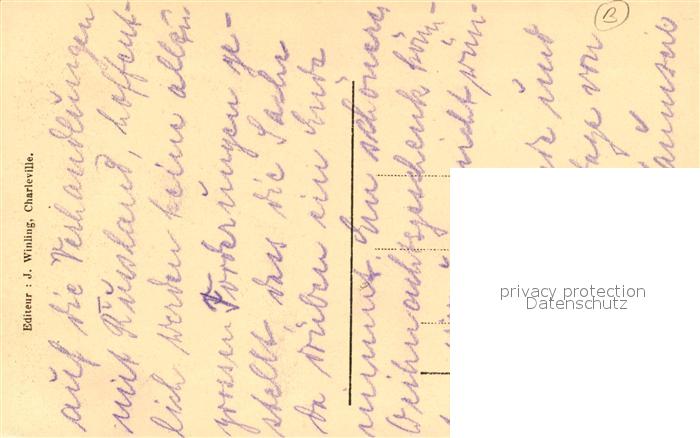 auf die Verhandlungen
mit Russland, hoffent-
lich werden keine allzu
grossen Forderungen ge-
stellt das die Sache
da drüben ein Ende
nimmt. Ein schöneres
Weihnachtsgeschenk kön-
nicht
und
von
Editeur : J. Winling, Charleville.
B
privacy protection
Datenschutz